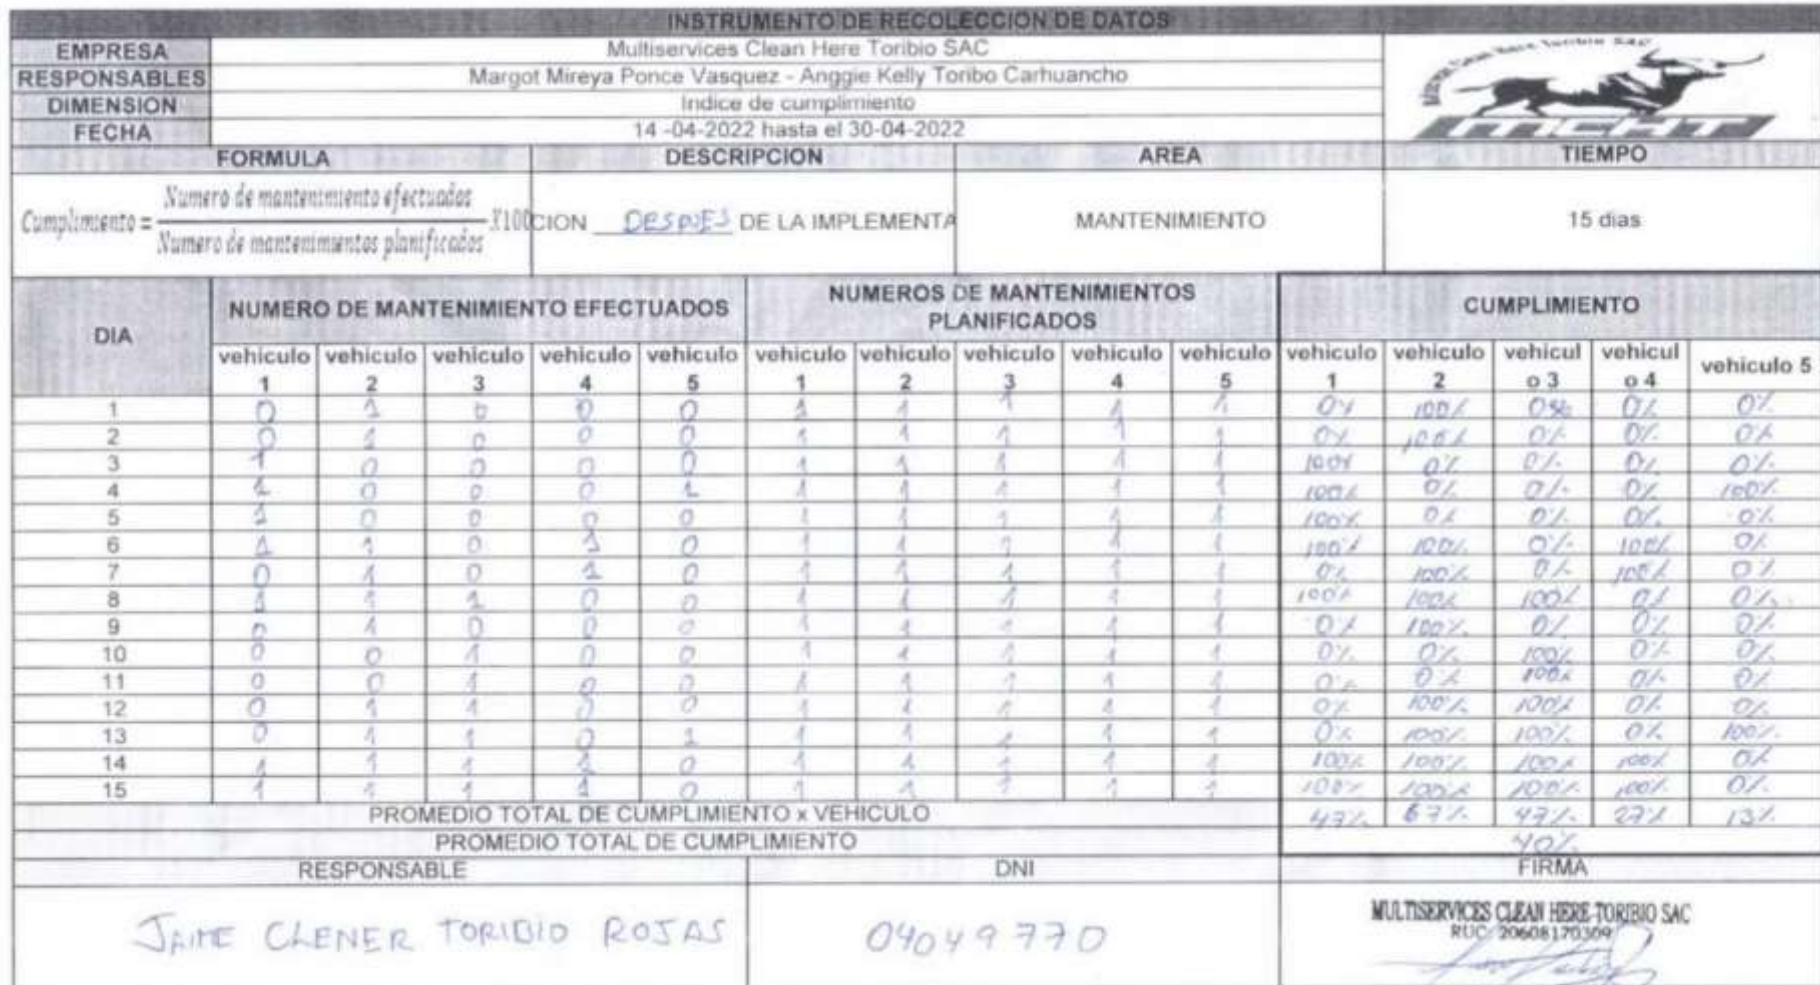 INSTRUMENTO DE RECOLECCION DE DATOS
EMPRESA Multiservices Clean Here Toribio SAC
RESPONSABLES Margot Mireya Ponce Vasquez - Anggie Kelly Toribo Carhuancho
DIMENSION Indice de cumplimiento
FECHA 14 -04-2022 hasta el 30-04-2022
MCHT
FORMULA DESCRIPCION AREA TIEMPO
Cumplimiento = Numero de mantenimiento efectuados / Numero de mantenimientos planificados X100
CION DESPUES DE LA IMPLEMENTA MANTENIMIENTO 15 dias
DIA NUMERO DE MANTENIMIENTO EFECTUADOS NUMEROS DE MANTENIMIENTOS PLANIFICADOS CUMPLIMIENTO
vehiculo 1 vehiculo 2 vehiculo 3 vehiculo 4 vehiculo 5 vehiculo 1 vehiculo 2 vehiculo 3 vehiculo 4 vehiculo 5 vehiculo 1 vehiculo 2 vehicul o 3 vehicul o 4 vehiculo 5
1 0 1 0 0 0 1 1 1 1 1 0% 100% 0% 0% 0%
2 0 1 0 0 0 1 1 1 1 1 0% 100% 0% 0% 0%
3 1 0 0 0 0 1 1 1 1 1 100% 0% 0% 0% 0%
4 1 0 0 0 1 1 1 1 1 1 100% 0% 0% 0% 100%
5 1 0 0 0 0 1 1 1 1 1 100% 0% 0% 0% 0%
6 1 1 0 1 0 1 1 1 1 1 100% 100% 0% 100% 0%
7 0 1 0 1 0 1 1 1 1 1 0% 100% 0% 100% 0%
8 1 1 1 0 0 1 1 1 1 1 100% 100% 100% 0% 0%
9 0 1 0 0 0 1 1 1 1 1 0% 100% 0% 0% 0%
10 0 0 1 0 0 1 1 1 1 1 0% 0% 100% 0% 0%
11 0 0 1 0 0 1 1 1 1 1 0% 0% 100% 0% 0%
12 0 1 1 0 0 1 1 1 1 1 0% 100% 100% 0% 0%
13 0 1 1 0 1 1 1 1 1 1 0% 100% 100% 0% 100%
14 1 1 1 1 0 1 1 1 1 1 100% 100% 100% 100% 0%
15 1 1 1 1 0 1 1 1 1 1 100% 100% 100% 100% 0%
PROMEDIO TOTAL DE CUMPLIMIENTO x VEHICULO 47% 67% 47% 27% 13%
PROMEDIO TOTAL DE CUMPLIMIENTO 40%
RESPONSABLE DNI FIRMA
JAIME CLENER TORIBIO ROJAS 04049770
MULTISERVICES CLEAN HERE TORIBIO SAC
RUC: 20608170309